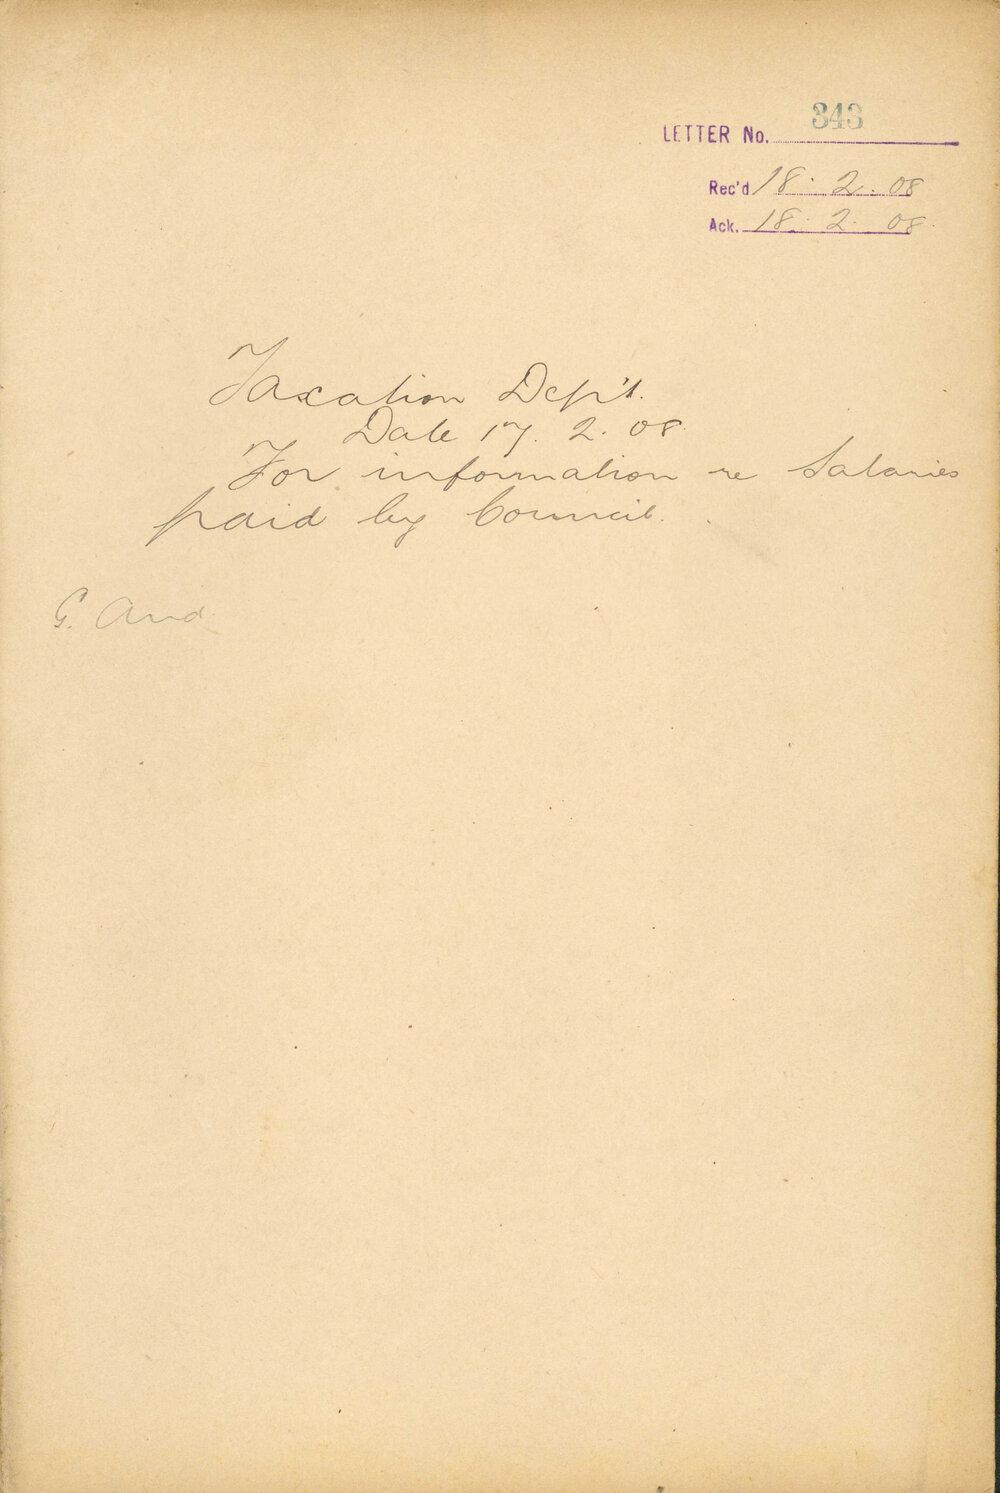 LETTER No. 343
Rec'd 18. 2. 08
Ack. 18. 2. 08.
Taxation Dep't.
Date 17. 2. 08.
For information re Salaries
paid by Council.
G. Aud.